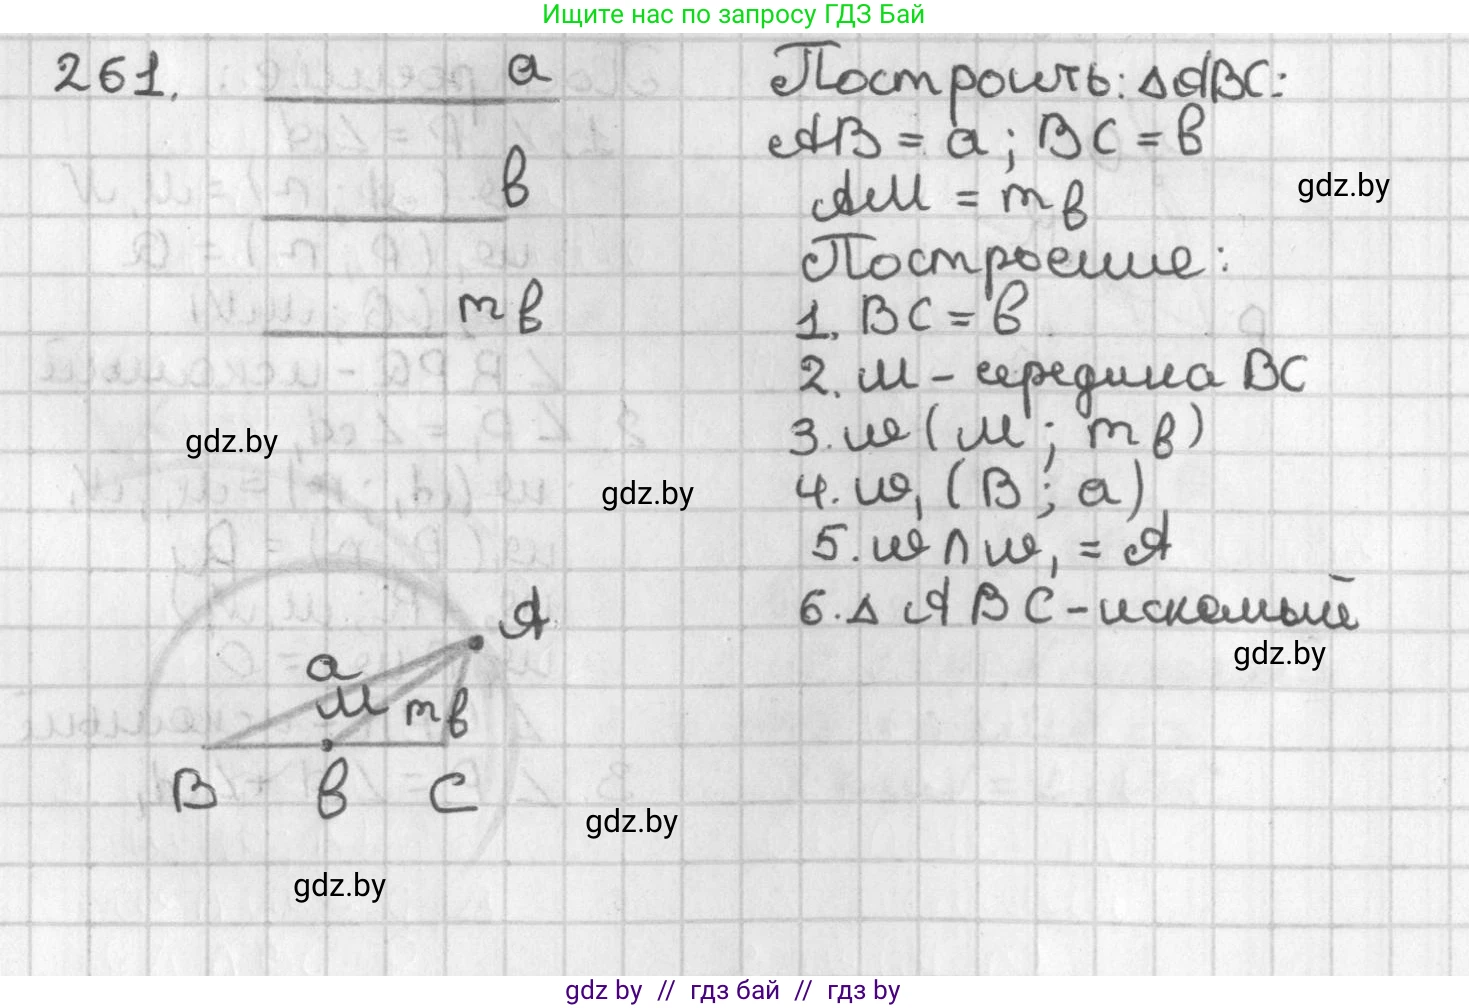 Ищите нас по запросу ГДЗ Бай
261.
a
в
mв
Построить: △ABC:
AB = a; BC = в
AM = mв
gdz.by
Построение:
1. BC = в
2. M - середина BC
3. ω (M; mв)
4. ω₁ (B; a)
5. ω ∩ ω₁ = A
6. △ ABC - искомый
gdz.by
gdz.by
gdz.by
A
a
M
mв
B
в
C
gdz.by
gdz.by
gdz by // гдз бай // гдз by